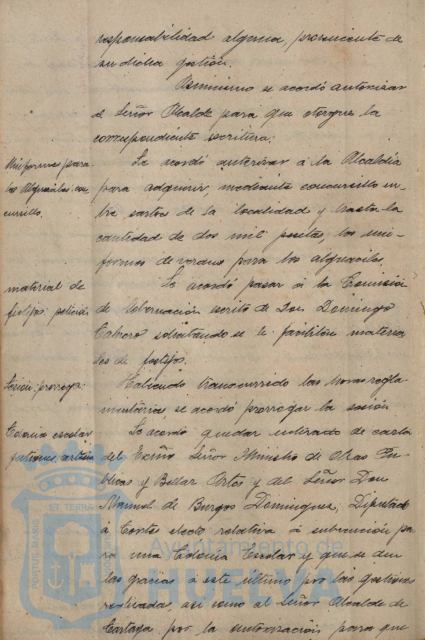 responsabilidad alguna, proveniente de
su dicha gestión.
Asimismo se acordó autorizar
al Señor Alcalde para que otorgue la
correspondiente escritura.
Uniforme para
los Alguaciles: con
cursillo.
Se acordó autorizar á la Alcaldía
para adquirir, mediante concursillo en-
tre sastres de la localidad y hasta la
cantidad de dos mil pesetas, los uni-
formes de verano para los alguaciles.
material de
festejos: petición
Se acordó pasar á la Comisión
de Gobernación escrito de Don Domingo
solicitando se le faciliten materia
les de festejos.
Sesión: prorroga:
Habiendo transcurrido las horas regla
mentarias, se acordó prorrogar la sesión.
Colonia escolar
Se acordó quedar enterado de carta
del Excmo Señor Ministro de Obras Pú-
blicas y Bellas Artes y del Señor Don
Manuel de Burgos Dominguez, Diputado
á Cortes electo relativa á subvención pa
ra una Colonia Escolar y que se den
las gracias á este último por las gestiones
realizadas, así como al Señor Alcalde de
Cartaya por la autorización para que
Ayuntamiento de
HUELVA